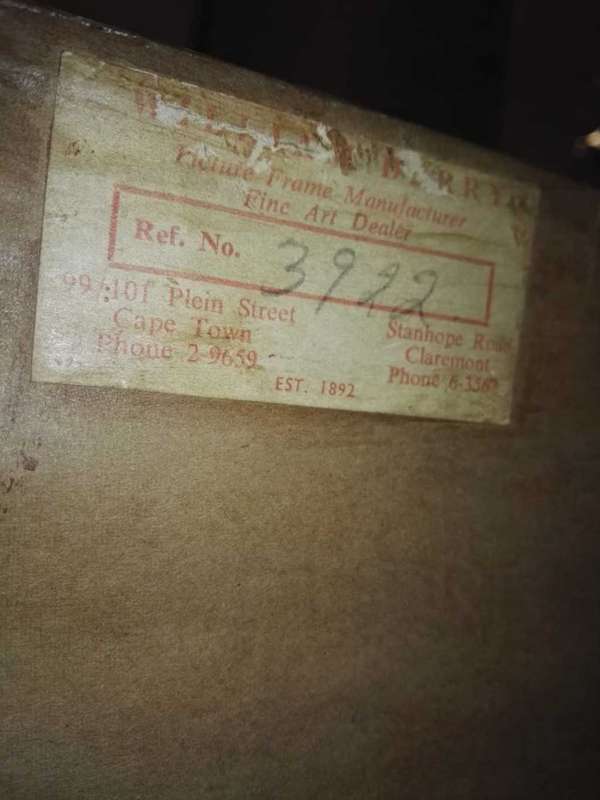 Picture Frame Manufacturer
Fine Art Dealer
Ref. No. 3922
99/101 Plein Street
Cape Town
Phone 2-9659
Stanhope Road
Claremont
Phone
EST. 1892